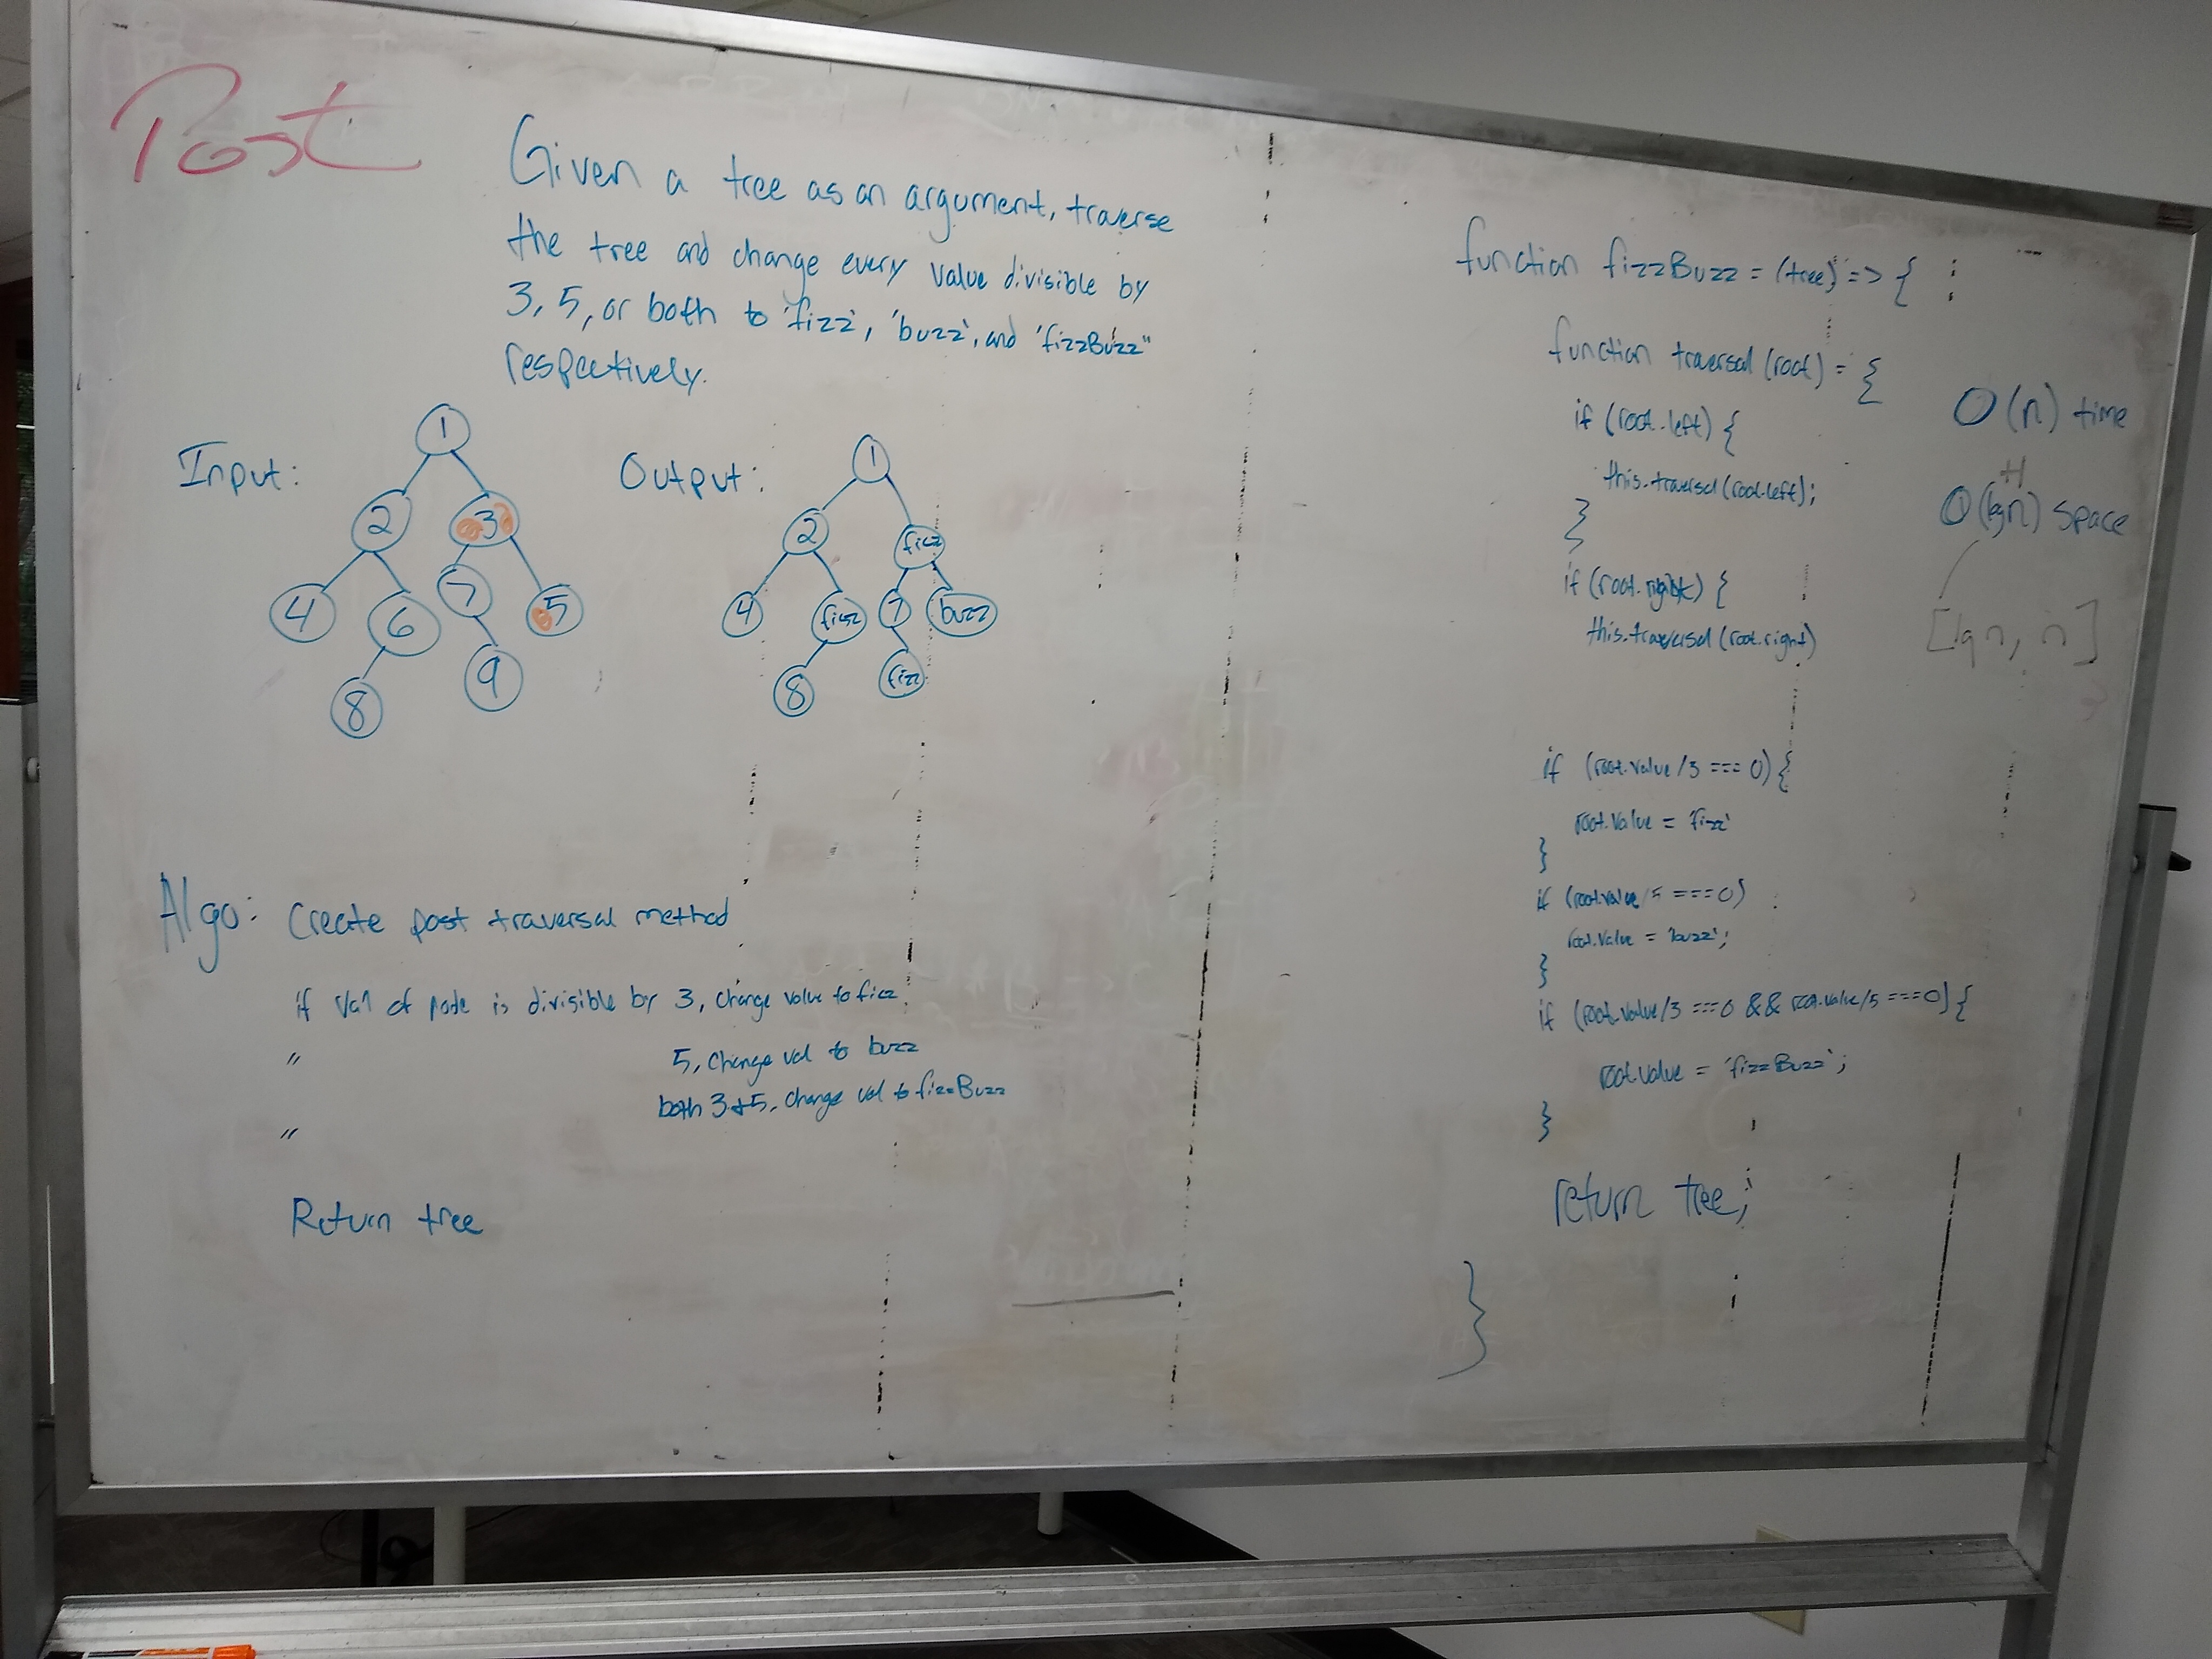 Post
Given a tree as an argument, traverse
the tree and change every value divisible by
3, 5, or both to 'fizz', 'buzz', and 'fizzBuzz"
respectively.
Input:
1
2 3
4 6 7 5
8 9
Output:
1
2 fizz
4 fizz 7 buzz
8 fizz
Algo: Create post traversal method
if val of node is divisible by 3, change value to fizz
" 5, change val to buzz
both 3 & 5, change val to fizzBuzz
"
Return tree
function fizzBuzz = (tree) => {
function traversal (root) = {
if (root.left) {
this.traversal (root.left);
}
if (root.right) {
this.traversal (root.right)
if (root.value /3 === 0) {
root.value = 'fizz'
}
if (root.value /5 === 0)
root.value = 'buzz';
}
if (root.value/3 === 0 && root.value/5 === 0) {
root.value = 'fizzBuzz';
}
return tree;
}
O(n) time
H
O(lgn) space
[lgn, n]